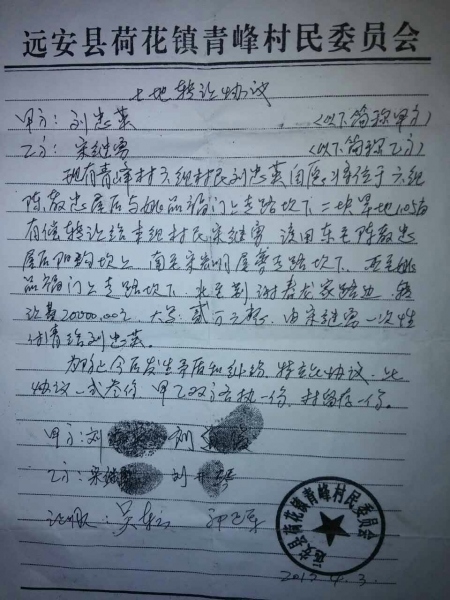 远安县荷花镇青峰村民委员会
土地转让协议
甲方：刘忠英 （以下简称甲方）
乙方：宋继勇 （以下简称乙方）
现有青峰村六组村民刘忠英自愿将位于六组
陈敬忠屋后与 门上走路坎下二块旱地
有偿转让给本组村民宋继勇 该田东至陈敬忠
屋后阳沟坎上 南至宋 屋 走路坎下 西至
门上走路坎下 北至 谢春龙家路边 转
让费20000.00元 大写：贰万元整 由宋继勇一次性
付清给刘忠英。
为防止今后发生矛盾和纠纷，特立此协议，此
协议一式叁份 甲乙双方各执一份，村留存一份。
甲方：刘 刘
乙方：宋继 刘
证明人：吴
远安县荷花镇青峰村民委员会
4.3